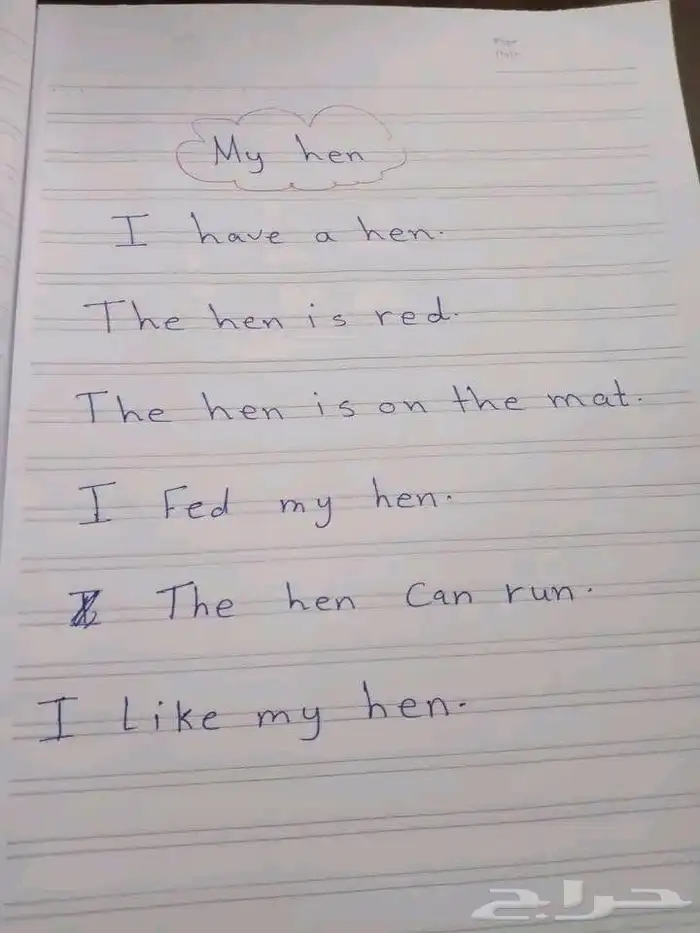 My hen
I have a hen.
The hen is red.
The hen is on the mat.
I Fed my hen.
The hen Can run.
I Like my hen.
حراج